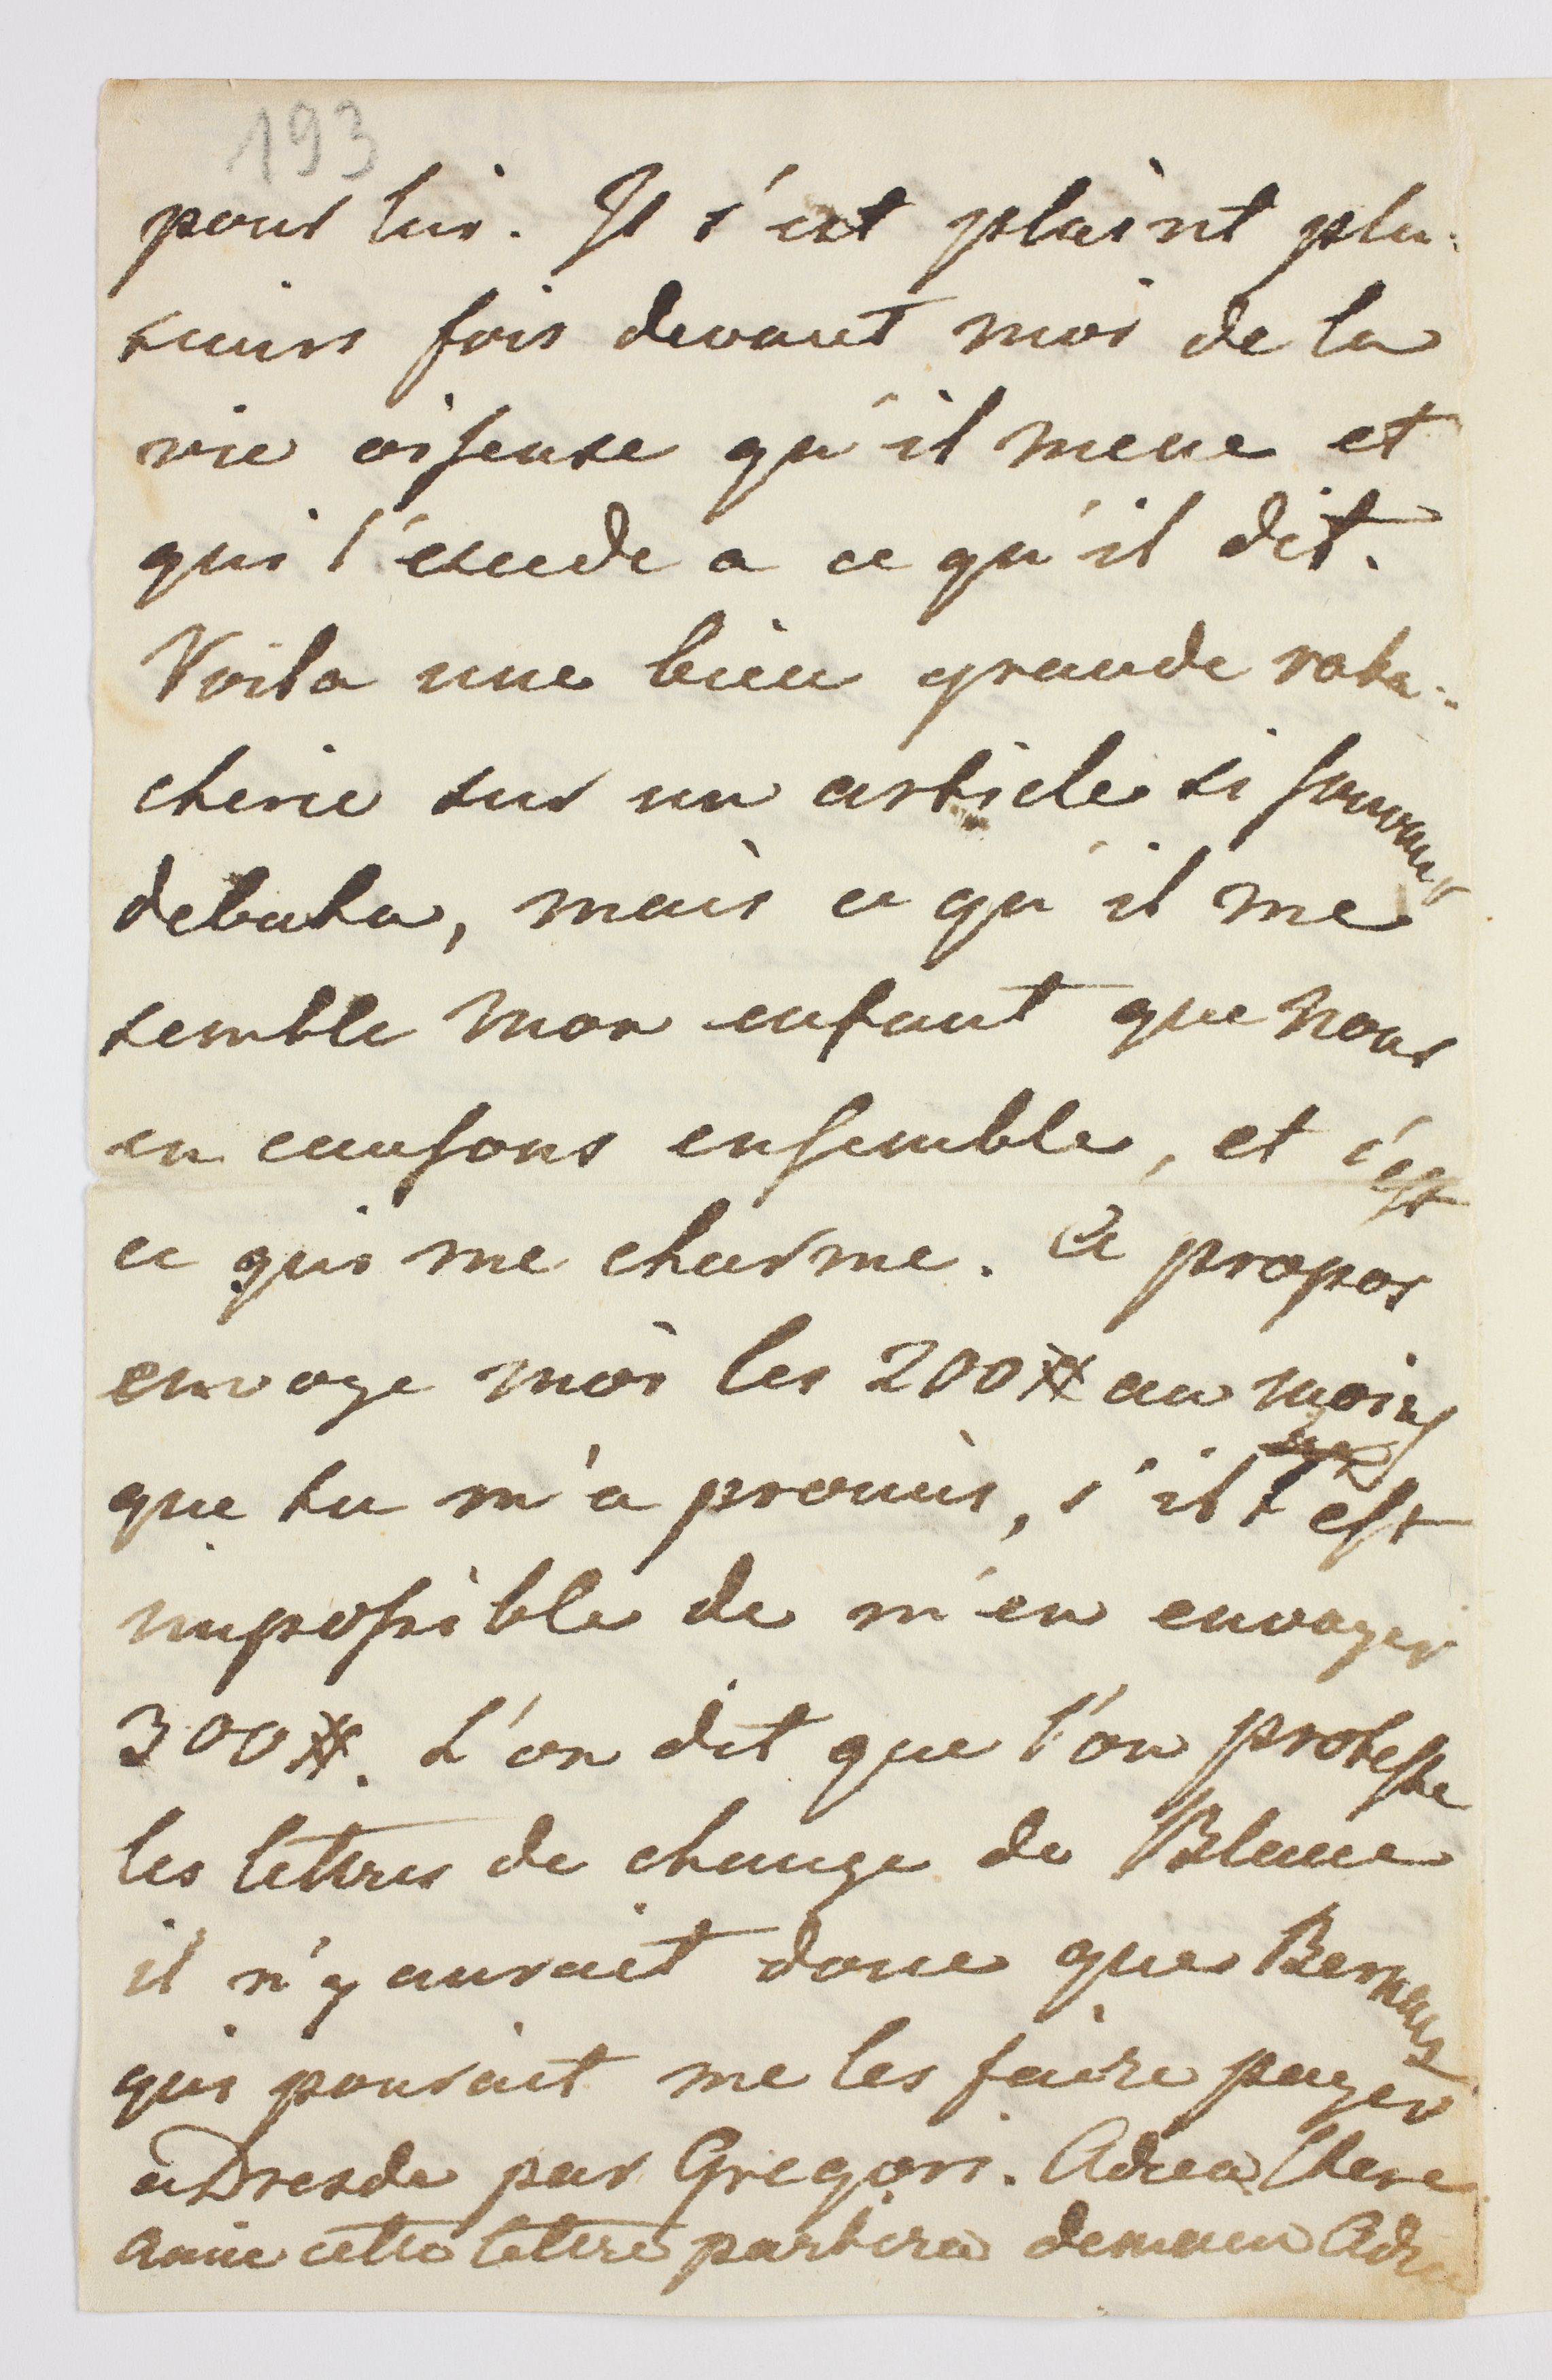 193
pour lui. Il s'est plaint plu-
sieurs fois devant moi de la
vie oiseuse qu'il mene et
qui l'excede a ce qu'il dit.
Voila une bien grande raba-
cherie sur un article si souvent
debatu, mais ce qu'il me
semble mon enfant que nous
en causons ensemble, et c'est
ce qui me charme. à propos
envoye moi les 200# au moins
que tu m'a promis, s'il t'est
impossible de m'en envoyer
300#. L'on dit que l'on proteste
les lettres de change de Blanc
il n'y aurait donc que Bernaux
qui pourait me les faire payer
à Dresde par Gregori. Adieu Chere
amie cette lettre partira demain Adieu